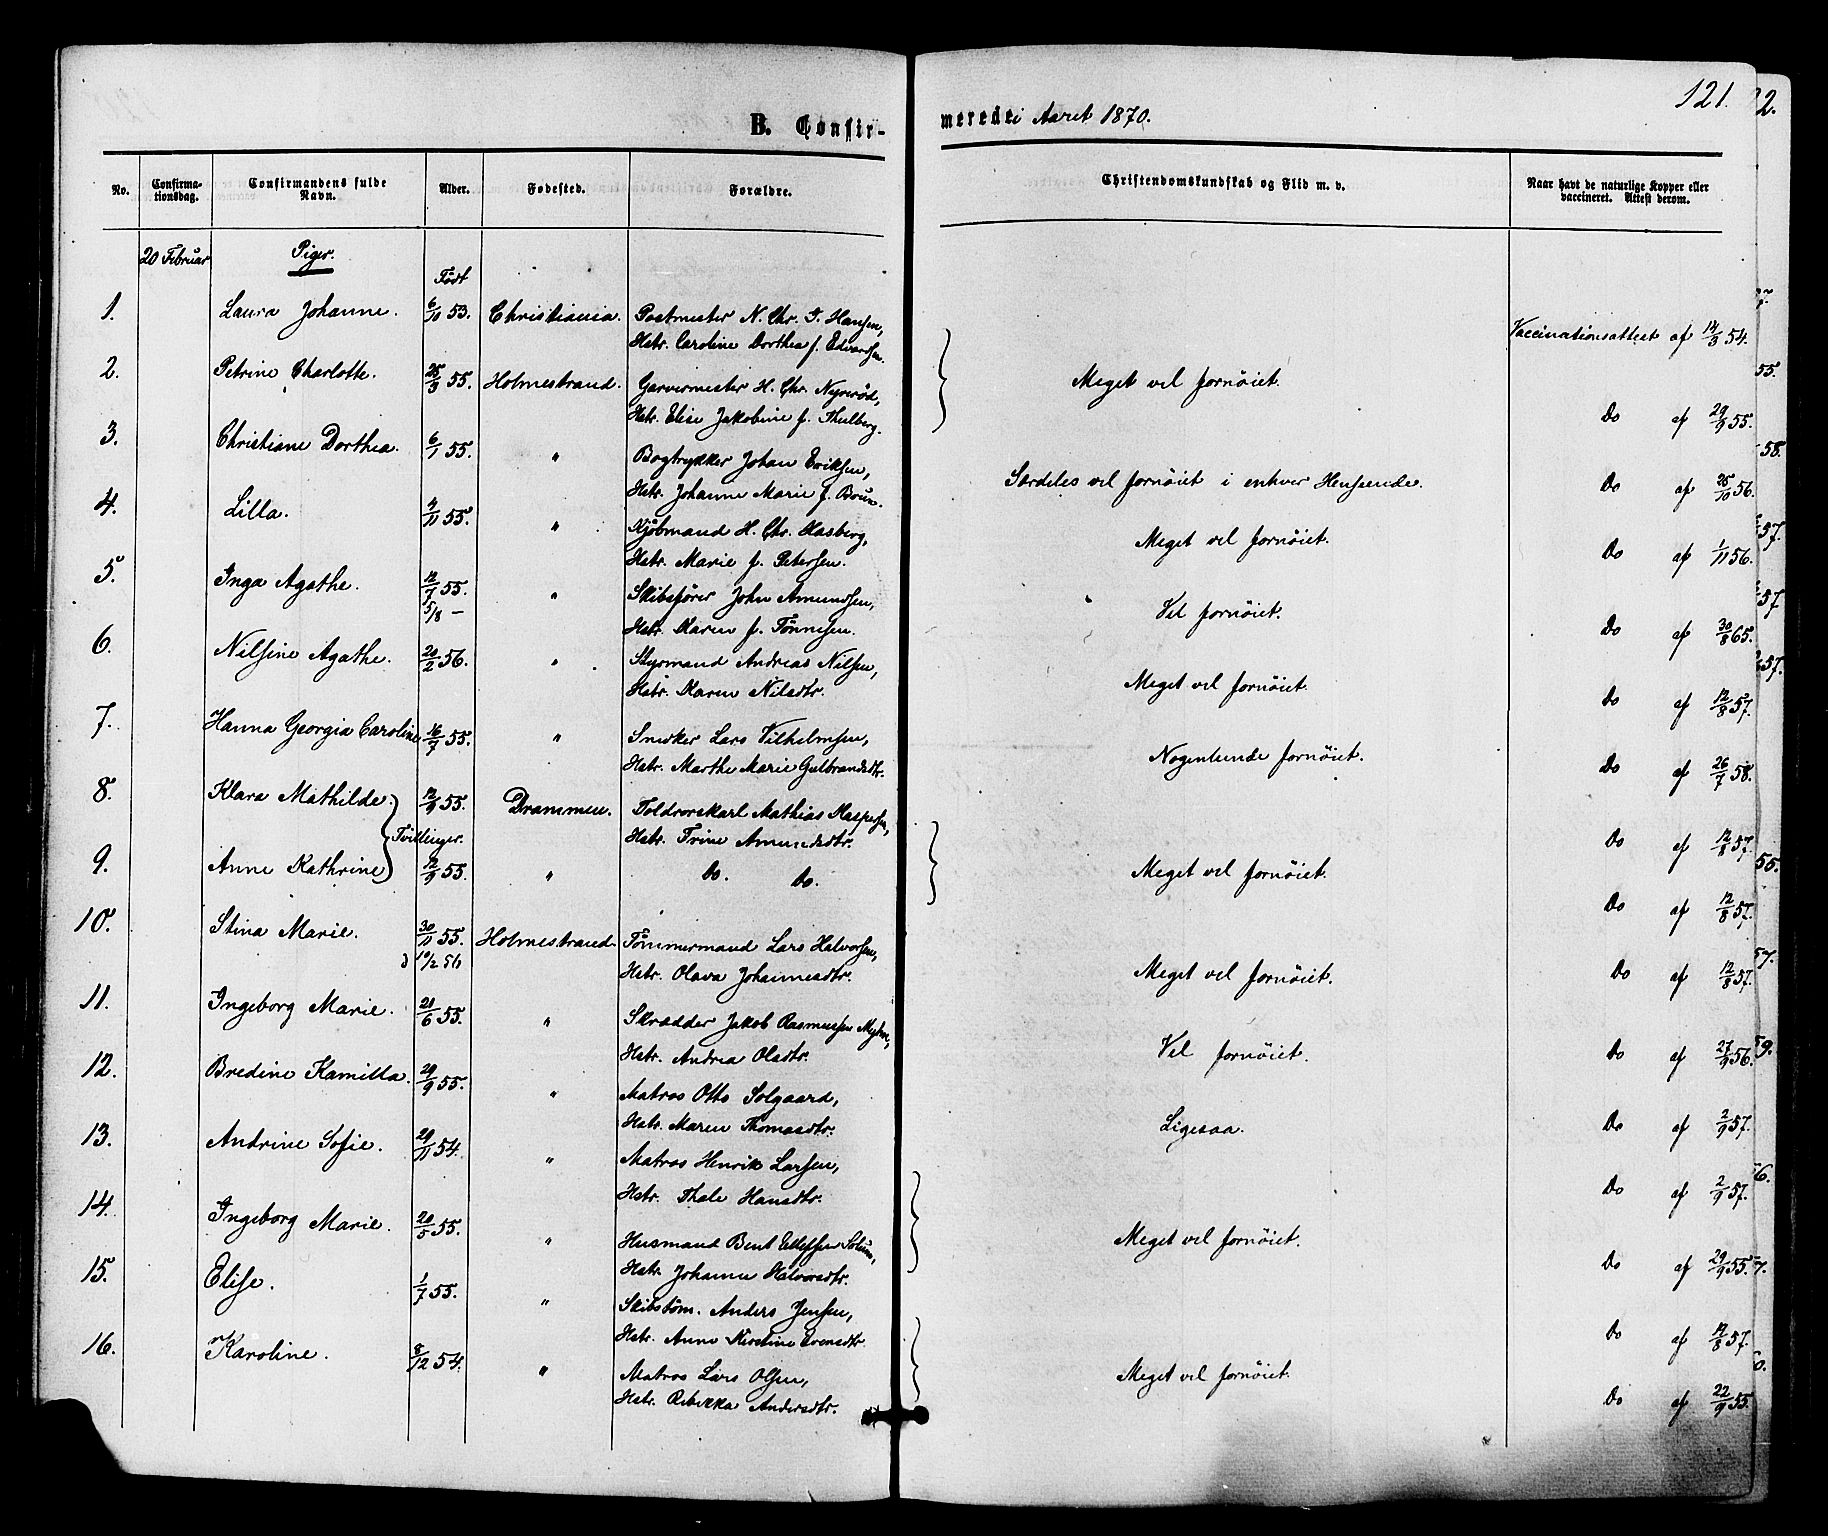 121.
B. Confirmerede i Aaret 1870.
No. Confirmationsdag. Confirmandens fulde Navn. Alder. Fødested. Forældre. Christendomskundskab og Flid m. v. Naar havt de naturlige Kopper eller vaccineret. Attest derom.
20 Februar Piger. Født
1. Laura Johanne. 6/10 53. Christiania. Postmester N. Chr. T. Hansen,
Hstr. Caroline Dorthea f. Edvardsen. Vaccinationsattest af 14/3 54.
2. Petrine Charlotte. 25/3 55. Holmestrand. Garvermester H. Chr. Nyerød, Meget vel fornøiet.
Hstr. Elise Jakobine f. Thulberg. Do af 29/9 55.
3. Christiane Dorthea. 6/1 55. " Bogtrykker Johan Eriksen, Særdeles vel fornøiet i enhver Henseende.
Hstr. Johanne Marie f. Bruun. Do af 25/10 56.
4. Lilla. 4/11 55. " Kjøbmand H. Chr. Aasberg, Meget vel fornøiet.
Hstr. Marie f. Petersen. Do af 1/11 56.
5. Inga Agathe. 12/7 55. " Skibsfører John Amundsen, Vel fornøiet.
5/8 — Hstr. Karen f. Tønnesen. Do af 30/8 65.
6. Nilsine Agathe. 20/2 56. " Styrmand Andreas Nilsen, Meget vel fornøiet.
Hstr. Karen Nilsdtr. Do af 12/8 57.
7. Hanna Georgia Caroline 16/7 55. " Snedker Lars Vilhelmsen, Nogenlunde fornøiet.
Hstr. Marthe Marie Gulbrandsdtr. Do af 26/7 58.
8. Klara Mathilde. 12/9 55. Drammen. Toldrorskarl Mathias Kaspersen,
Tvillinger. Hstr. Trine Amundsdtr. Do af 12/8 57.
9. Anne Kathrine 12/9 55. " Do. Do. Meget vel fornøiet.
Do af 12/8 57.
10. Stina Marie. 30/11 55. Holmestrand. Tømmermand Lars Halvorsen, Meget vel fornøiet.
10/2 56 Hstr. Olava Johannesdtr. Do af 12/8 57.
11. Ingeborg Marie. 20/6 55. " Skrædder Jakob Rasmussen
Hstr. Andrea Olsdtr. Vel fornøiet. Do af 27/9 56.
12. Bredine Kamilla. 29/9 55. " Matros Otto Solgaard,
Hstr. Maren Thomasdtr. Ligesaa. Do af 2/9 57.
13. Andrine Sofie. 29/11 54. " Matros Henrik Larsen,
Hstr. Thale Hansdtr. Do af 2/9 57.
14. Ingeborg Marie. 20/5 55. " Husmand Bent Ellefsen Solum, Meget vel fornøiet.
Hstr. Johanne Halvorsdtr. Do af 29/9 55.
15. Elise. 1/7 55. " Skibstøm. Anders Jensen,
Hstr. Anne Kirstine Evensdtr. Do af 12/8 57.
16. Karoline. 8/12 54. " Matros Lars Olsen, Meget vel fornøiet.
Hstr. Rebekka Andersdtr. Do af 22/9 55.